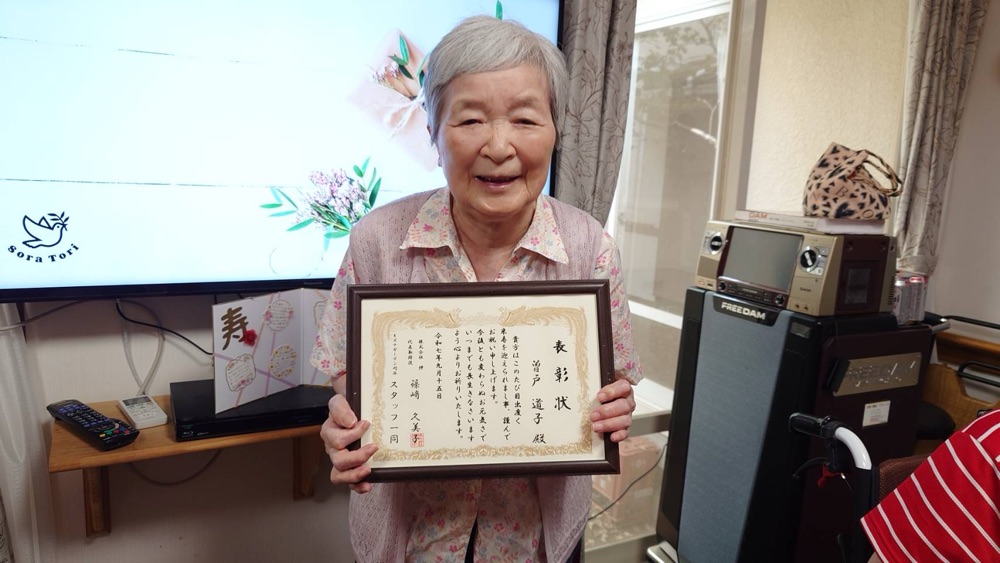 表彰状
曽戸 道子 殿
貴方はこのたび目出度く
米寿を迎えられまし事、謹んで
お祝い申し上げます。
今後とも変わらぬお元気さで
いつまでも長生きなさいます
よう心よりお祈りいたします。
令和七年九月十五日
株式会社 紳
代表取締役 篠崎 久美子
スタッフ一同
寿
Sora Tori
DAM
FREEDAM